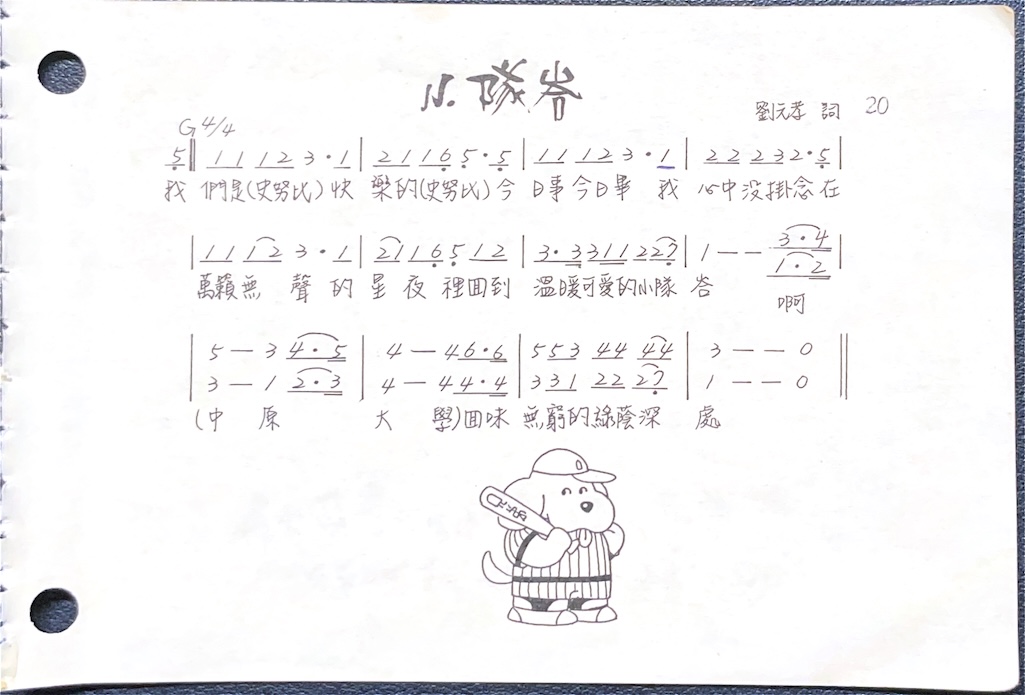 小隊峇
劉元孝 詞 20
G 4/4
5 ‖ 1 1 1 2 3 · 1 | 2 1 1 6 5 · 5 | 1 1 1 2 3 · 1 | 2 2 2 3 2 · 5 |
找 們是(史努比)快 樂的(史努比)今 日事今日畢 找 心中沒掛念在
| 1 1 1 2 3 · 1 | 2 1 1 6 5 1 2 | 3 · 3 3 1 1 2 2 7 | 1 — — 3 · 4 |
1 · 2
萬籟無 聲 的 星 夜 裡回到 溫暖可愛的小隊 峇 啊
| 5 — 3 4 · 5 | 4 — 4 6 · 6 | 5 5 3 4 4 4 4 | 3 — — 0 ‖
3 — 1 2 · 3 | 4 — 4 4 · 4 | 3 3 1 2 2 2 7 | 1 — — 0
(中 原 大 學)回味 無窮的綠蔭深 處